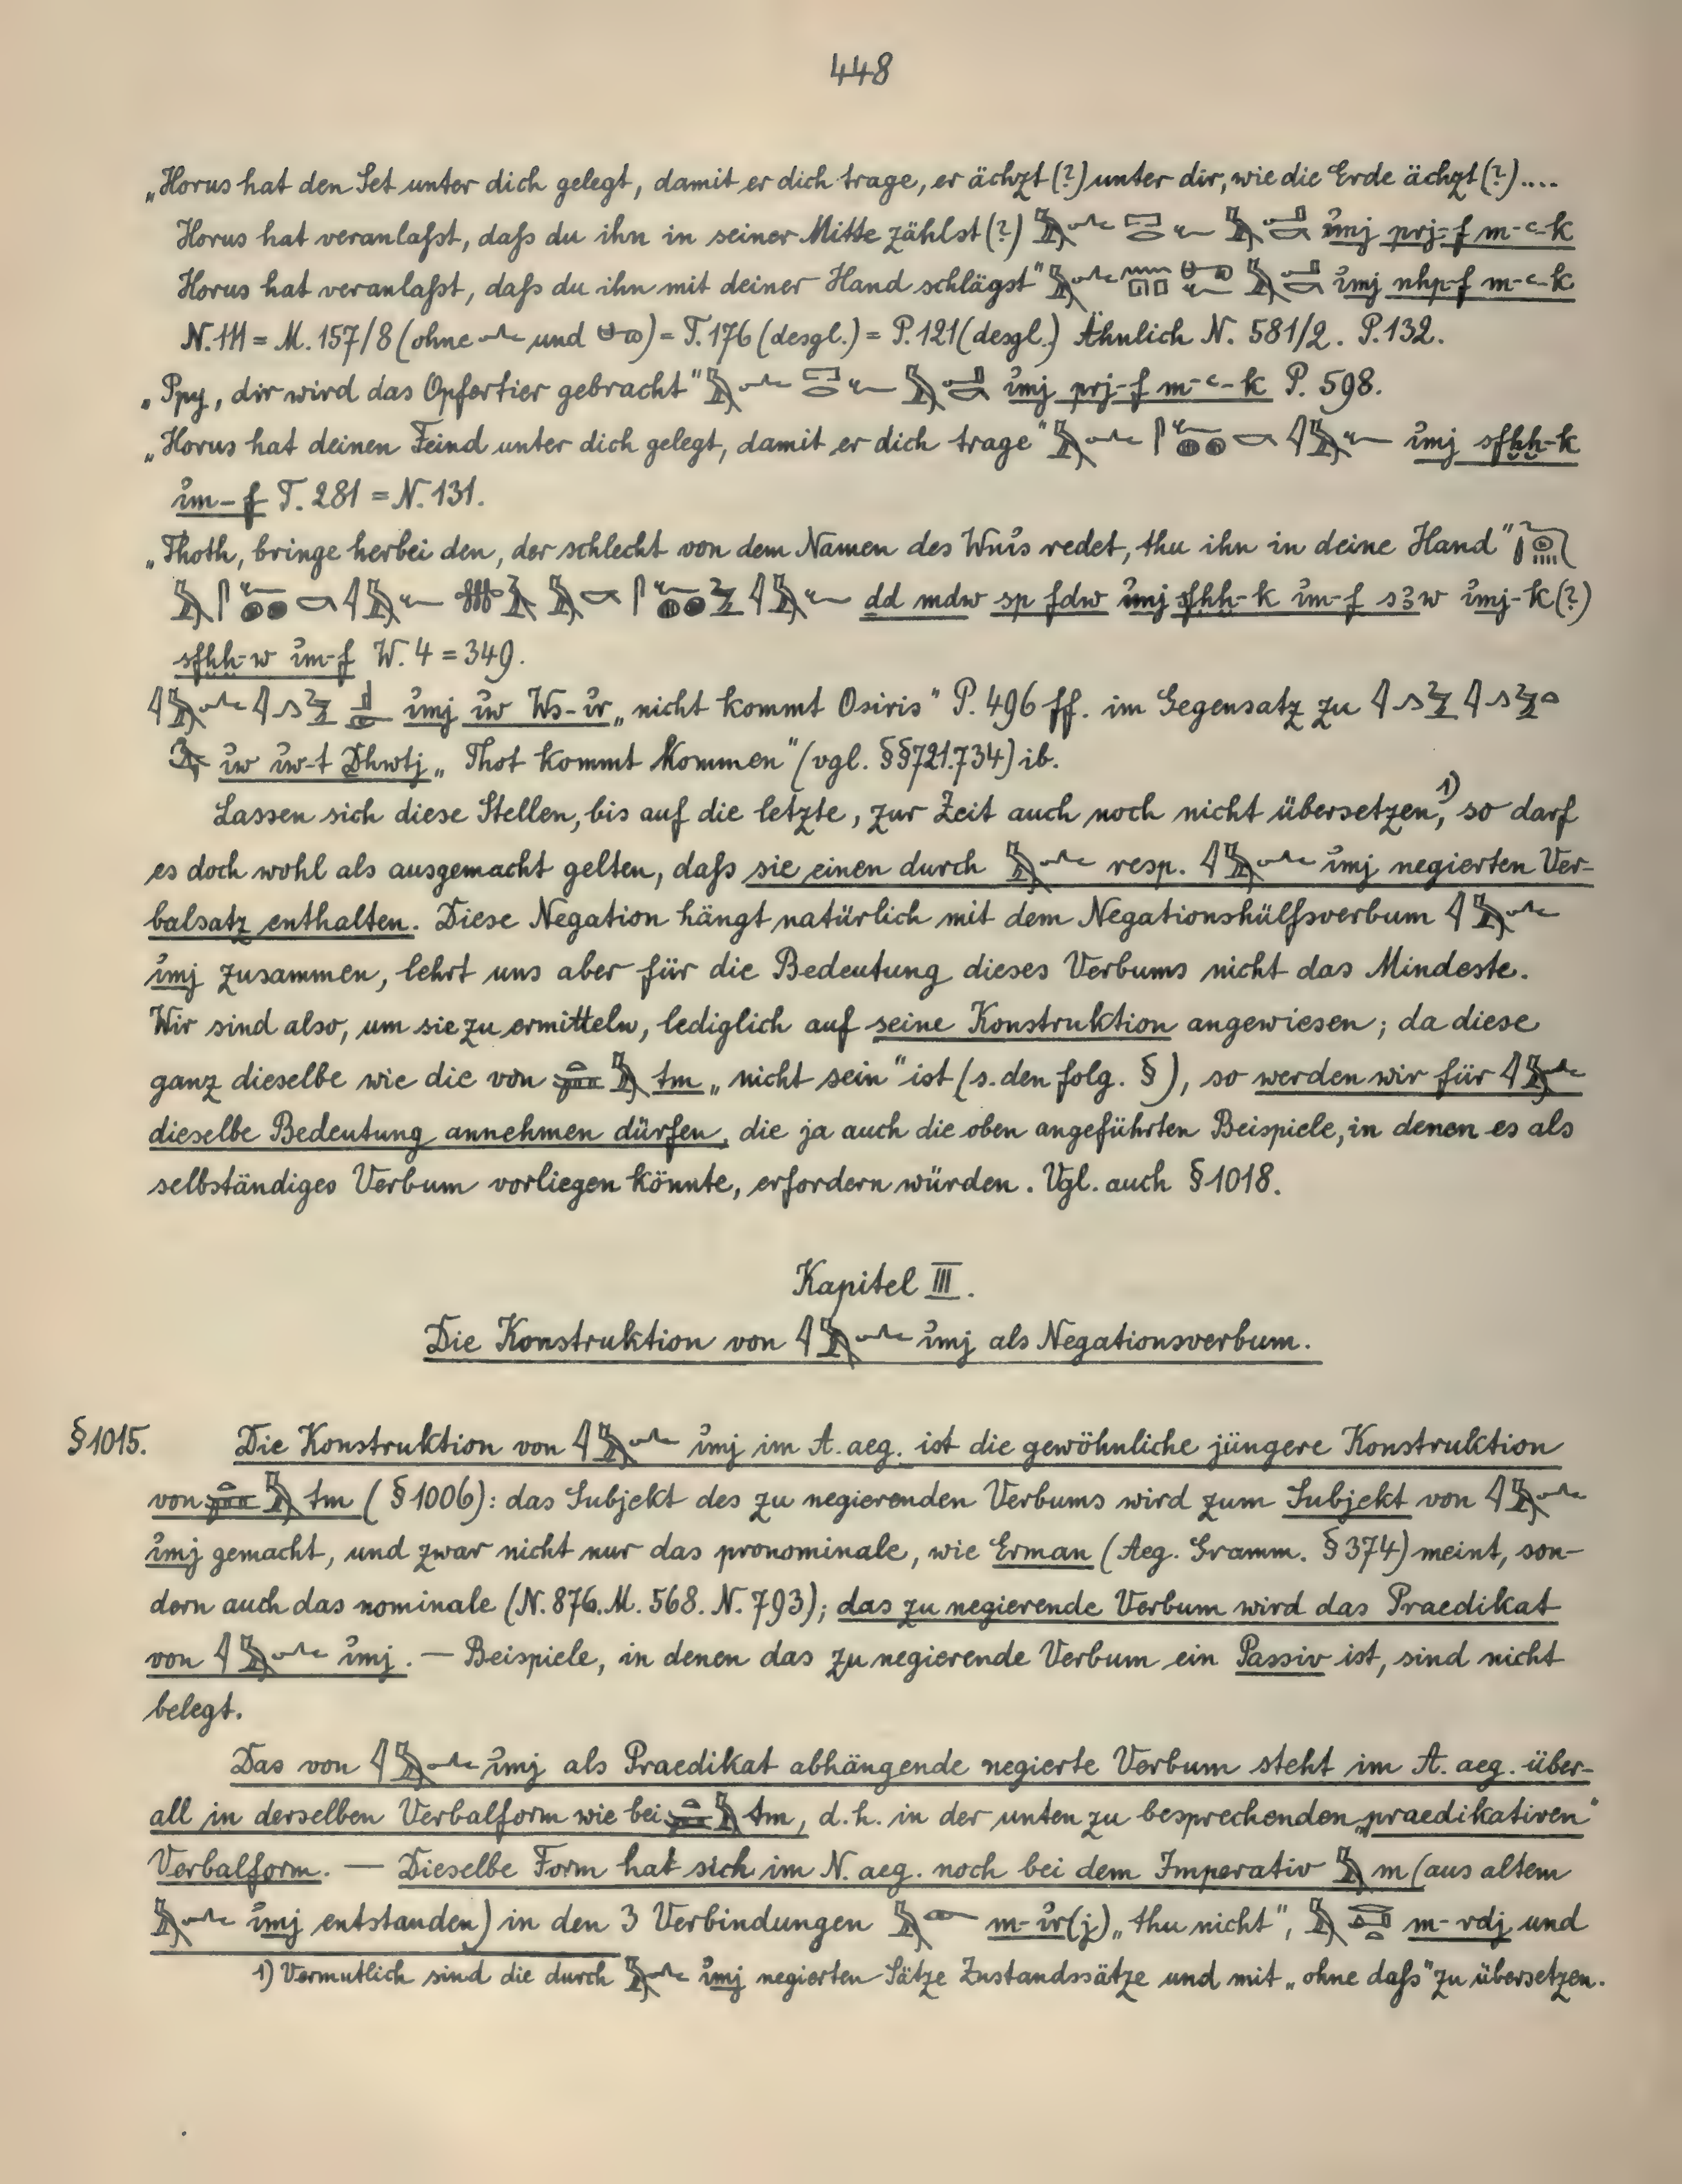 448
„Horus hat den Set unter dich gelegt, damit er dich trage, er ächzt (?) unter dir, wie die Erde ächzt (?)....
Horus hat veranlaßt, daß du ihn in seiner Mitte zählst (?) i͗mj prj-f m-ꜥ-k
Horus hat veranlaßt, daß du ihn mit deiner Hand schlägst" i͗mj nhp-f m-ꜥ-k
N. 111 = M. 157/8 (ohne und ) = T. 176 (desgl.) = P. 121 (desgl.) Ähnlich N. 581/2. P. 132.
„Ppy, dir wird das Opfertier gebracht" i͗mj prj-f m-ꜥ-k P. 598.
„Horus hat deinen Feind unter dich gelegt, damit er dich trage" i͗mj sfḫḫ-k
i͗m-f T. 281 = N. 131.
„Thoth, bringe herbei den, der schlecht von dem Namen des Wni͗s redet, thu ihn in deine Hand"
dd mdw sp fdw i͗mj sfḫḫ-k i͗m-f sꜣw i͗mj-k (?)
sfḫḫ-w i͗m-f W. 4 = 349.
i͗mj i͗w Ws-i͗r „nicht kommt Osiris" P. 496 ff. im Gegensatz zu
i͗w i͗w-t Dhwtj „Thot kommt kommen" (vgl. §§721.734) ib.
Lassen sich diese Stellen, bis auf die letzte, zur Zeit auch noch nicht übersetzen,¹⁾ so darf
es doch wohl als ausgemacht gelten, daß sie einen durch resp. i͗mj negierten Ver-
balsatz enthalten. Diese Negation hängt natürlich mit dem Negationshülfsverbum
i͗mj zusammen, lehrt uns aber für die Bedeutung dieses Verbums nicht das Mindeste.
Wir sind also, um sie zu ermitteln, lediglich auf seine Konstruktion angewiesen; da diese
ganz dieselbe wie die von tm „nicht sein" ist (s. den folg. §), so werden wir für
dieselbe Bedeutung annehmen dürfen, die ja auch die oben angeführten Beispiele, in denen es als
selbständiges Verbum vorliegen könnte, erfordern würden. Vgl. auch §1018.
Kapitel III.
Die Konstruktion von i͗mj als Negationsverbum.
§1015. Die Konstruktion von i͗mj im A. aeg. ist die gewöhnliche jüngere Konstruktion
von tm (§1006): das Subjekt des zu negierenden Verbums wird zum Subjekt von
i͗mj gemacht, und zwar nicht nur das pronominale, wie Erman (Aeg. Gramm. §374) meint, son-
dern auch das nominale (N. 876. M. 568. N. 793); das zu negierende Verbum wird das Praedikat
von i͗mj. — Beispiele, in denen das zu negierende Verbum ein Passiv ist, sind nicht
belegt.
Das von i͗mj als Praedikat abhängende negierte Verbum steht im A. aeg. über-
all in derselben Verbalform wie bei tm, d.h. in der unten zu besprechenden „praedikativen"
Verbalform. — Dieselbe Form hat sich im N. aeg. noch bei dem Imperativ m (aus altem
i͗mj entstanden) in den 3 Verbindungen m-i͗r(j) „thu nicht", m-rdj und
1) Vermutlich sind die durch i͗mj negierten Sätze Zustandssätze und mit „ohne daß" zu übersetzen.